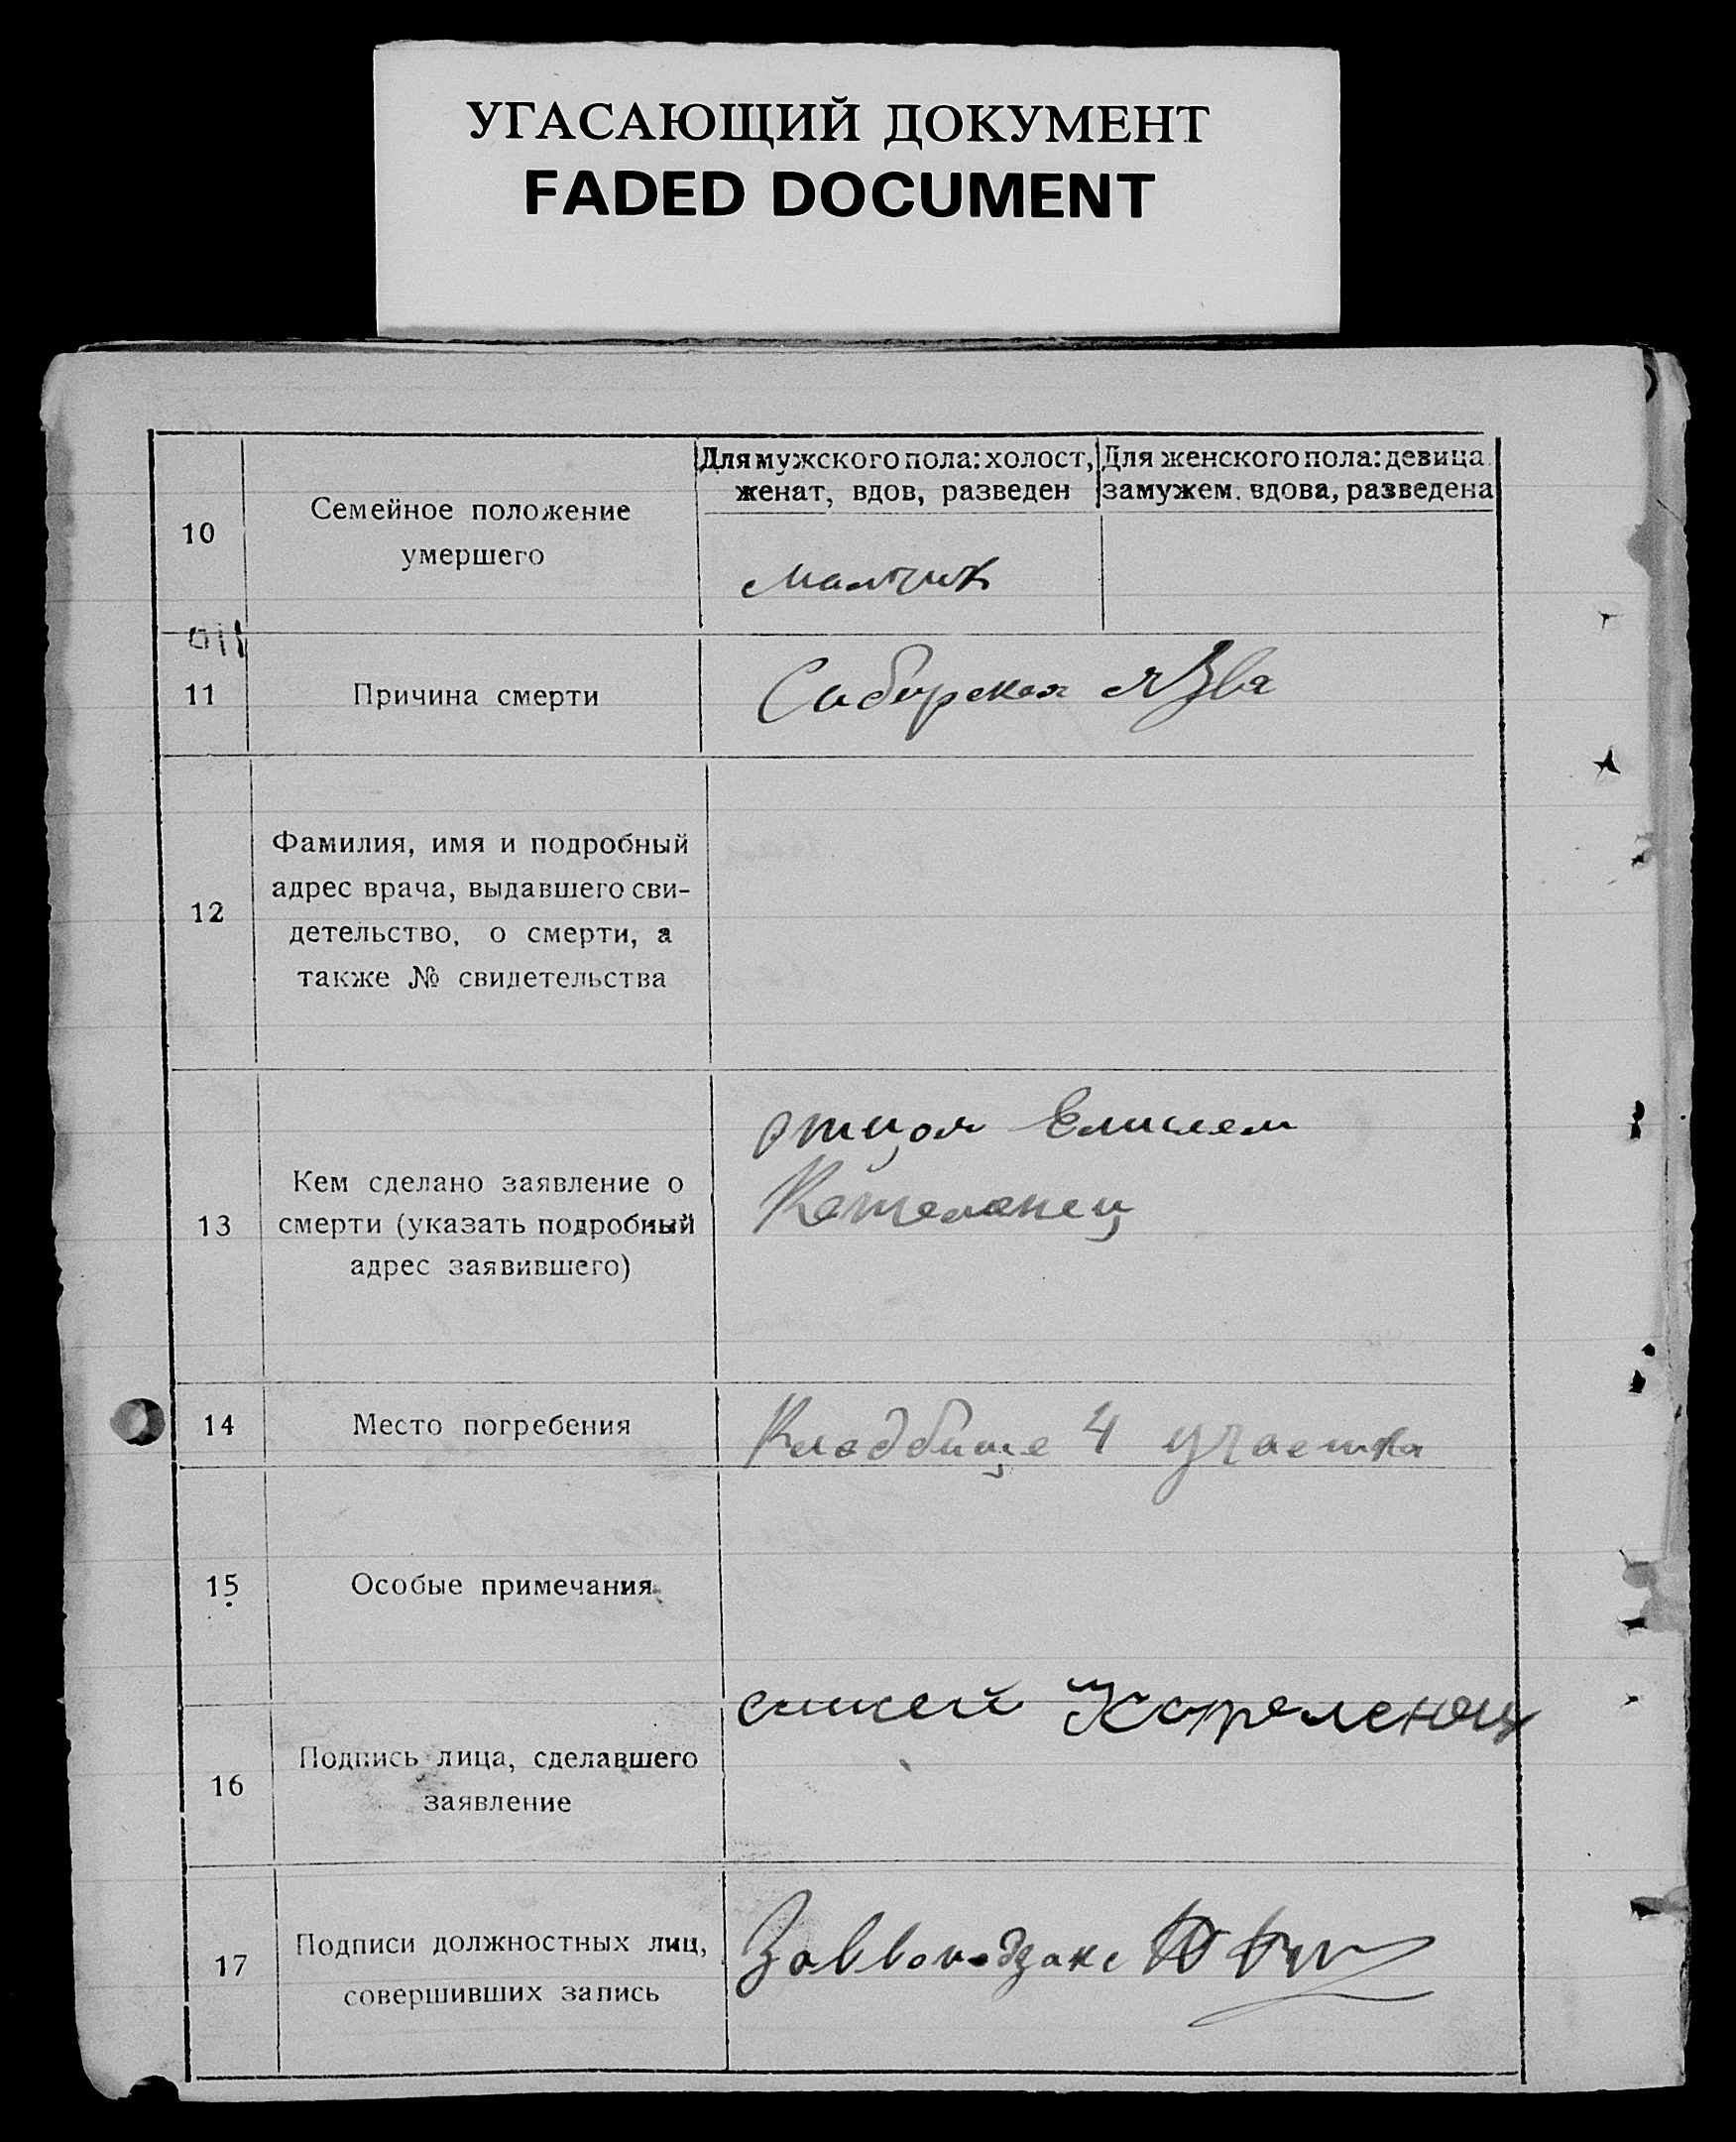 УГАСАЮЩИЙ ДОКУМЕНТ
FADED DOCUMENT
10
Семейное положение
умершего
Для мужского пола: холост,
женат, вдов, разведен
Для женского пола: девица
замужем. вдова, разведена
малчик
11
Причина смерти
Сибирская язва
12
Фамилия, имя и подробный
адрес врача, выдавшего сви-
детельство, о смерти, а
также № свидетельства
13
Кем сделано заявление о
смерти (указать подробный
адрес заявившего)
отцом Елисеем
14
Место погребения
Кладбище 4 участка
15
Особые примечания
16
Подпись лица, сделавшего
заявление
17
Подписи должностных лиц,
совершивших запись